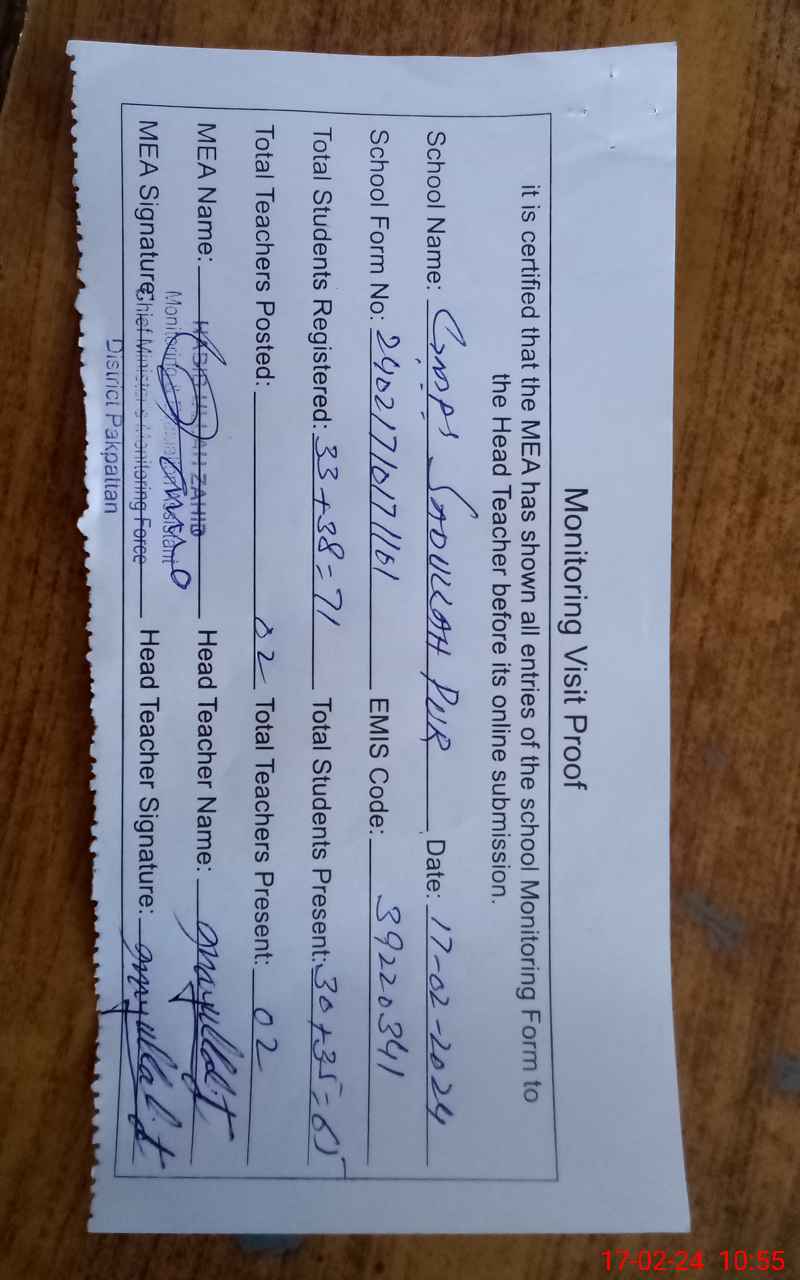 Monitoring Visit Proof
it is certified that the MEA has shown all entries of the school Monitoring Form to
the Head Teacher before its online submission.
School Name: GMPS SADULLAH PUR Date: 17-02-2024
School Form No: 24021710171101 EMIS Code: 39220341
Total Students Registered: 33+38=71 Total Students Present: 30+35=65
Total Teachers Posted: 02 Total Teachers Present: 02
MEA Name: ZAHID Head Teacher Name:
MEA Signature: Head Teacher Signature:
Monitoring Assistant
Chief Minister's Monitoring Force
District Pakpattan
17-02-24 10:55